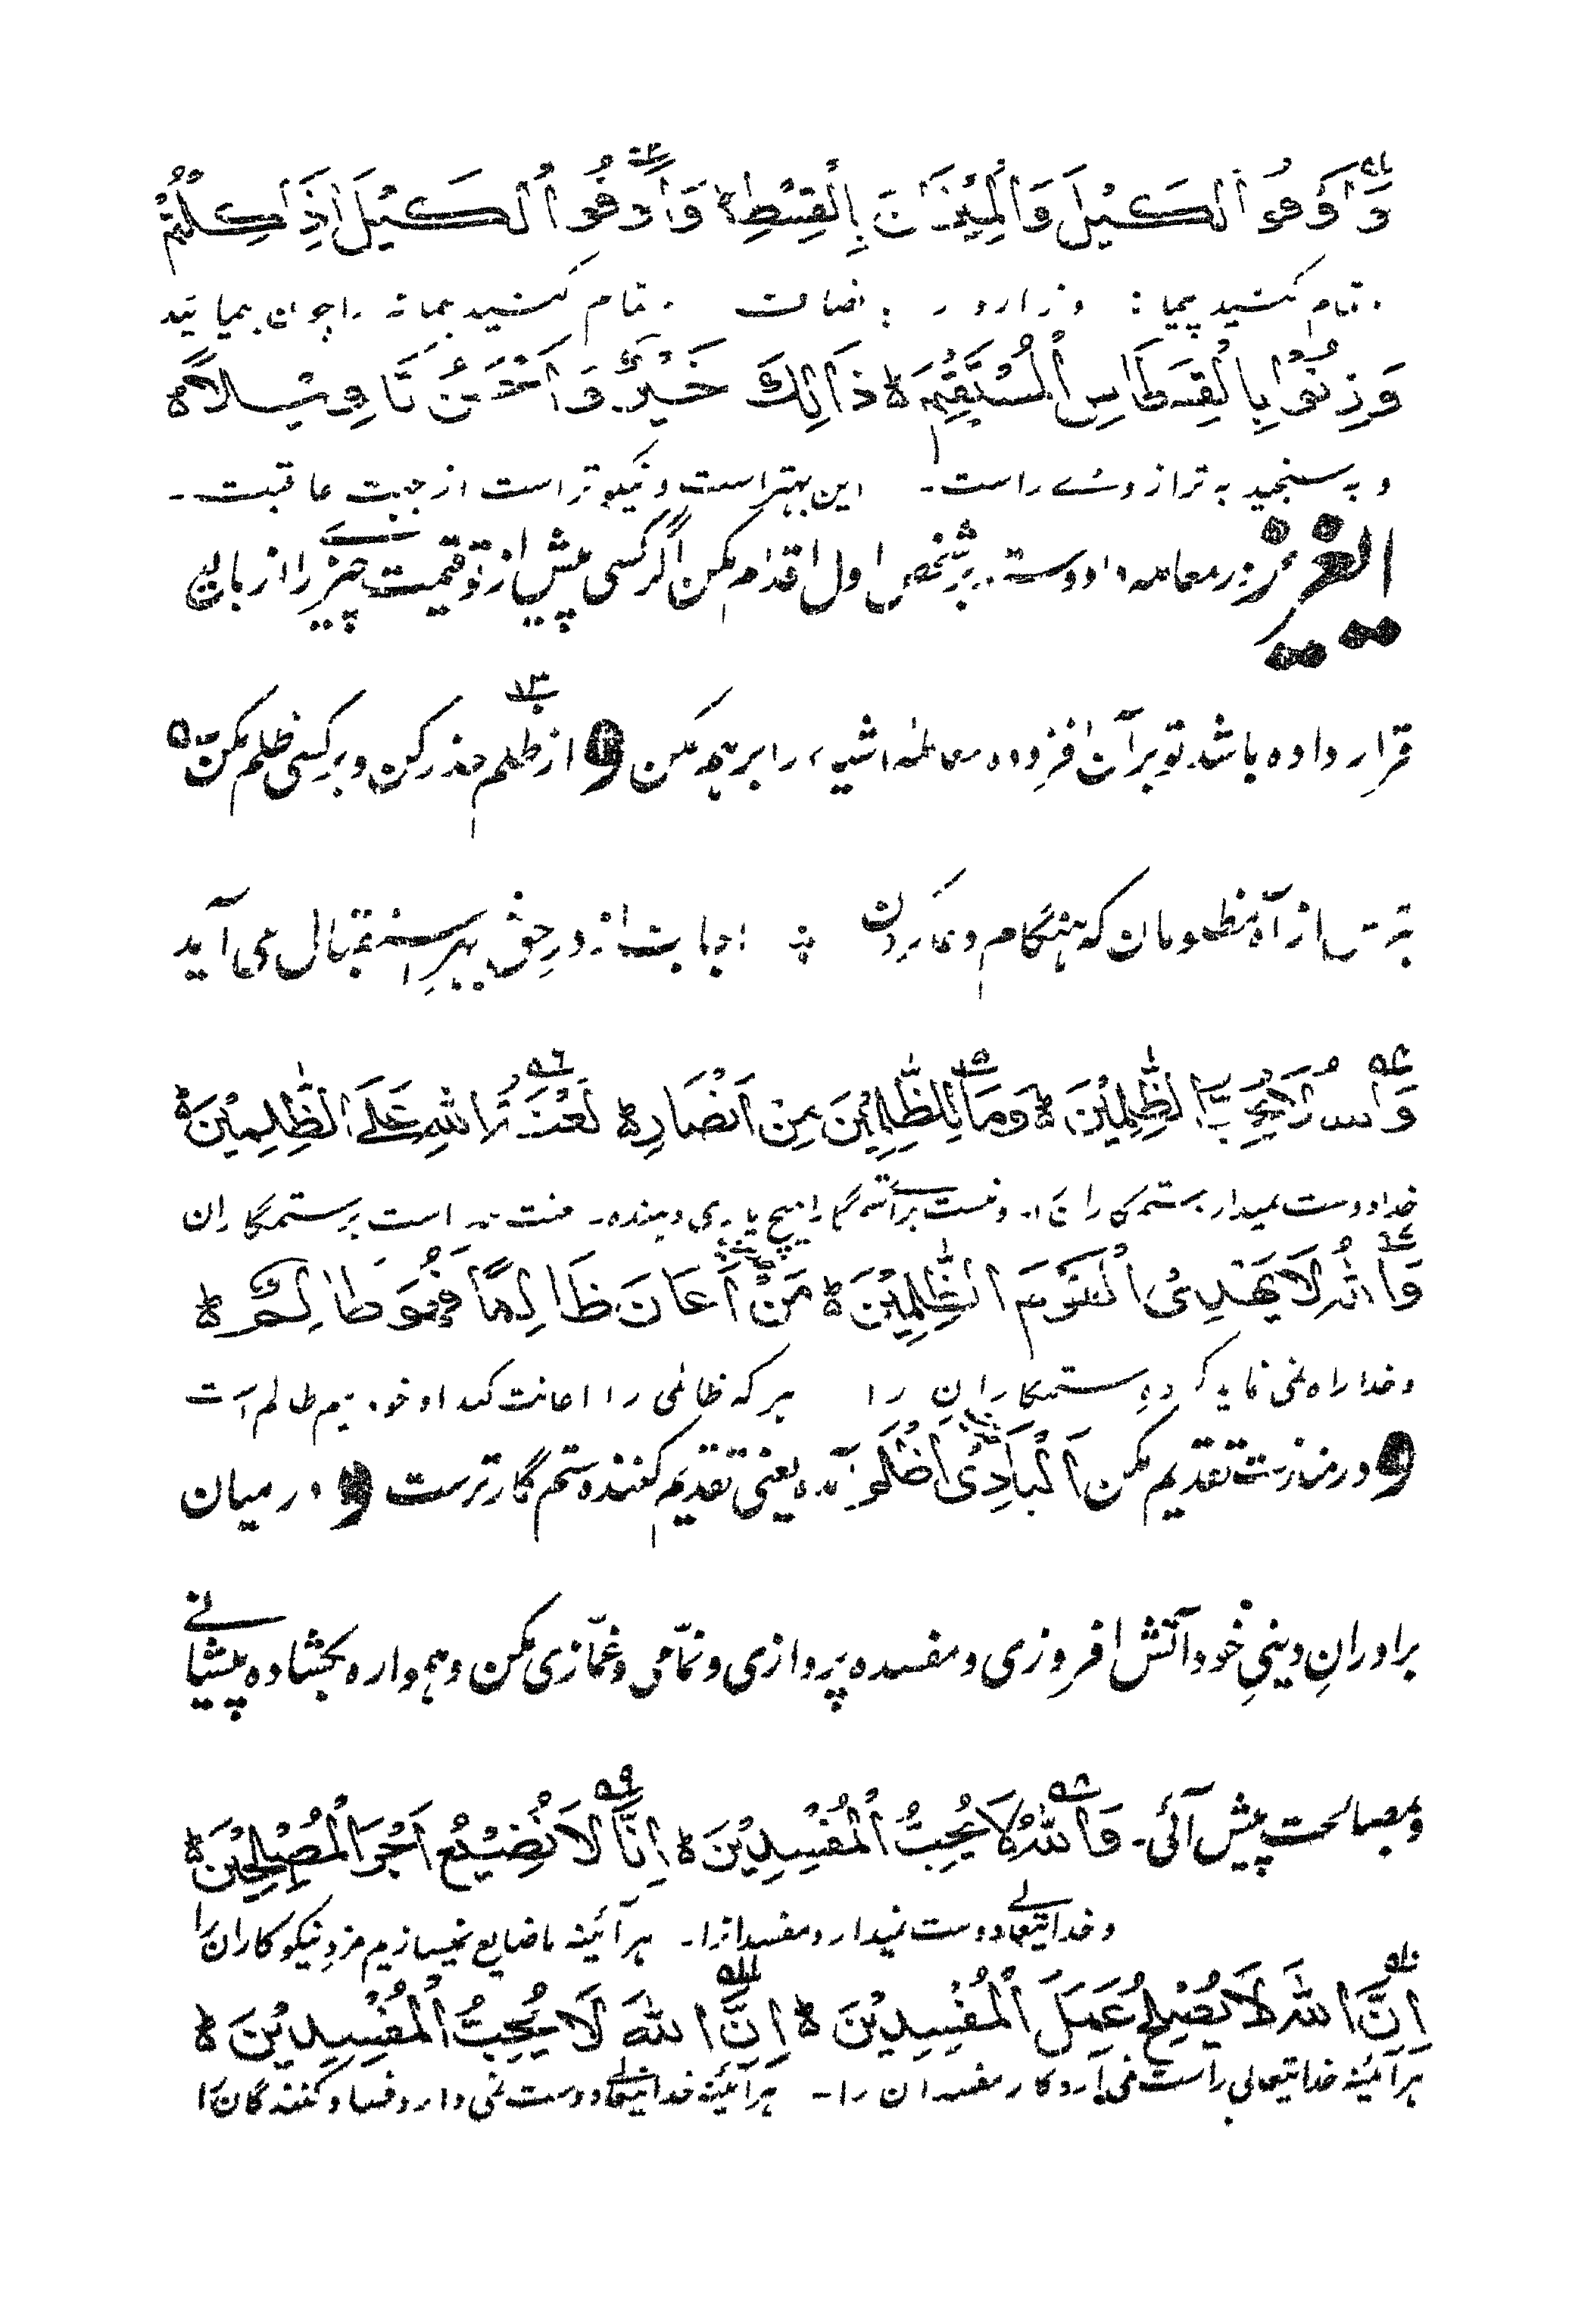 وَاَوْفُوا الْكَيْلَ وَالْمِيْزَانَ بِالْقِسْطِ ط وَاَوْفُوا الْكَيْلَ اِذَا كِلْتُمْ
تمام کنید پیمانه را چون بپیمائید
وَزِنُوْا بِالْقِسْطَاسِ الْمُسْتَقِيْمَ ط ذَالِكَ خَيْرٌ وَاَحْسَنُ تَاوِيْلاً ه
و به سنجید به ترازوئے راست۔ این بهتر است و نیکوتر است از جهت عاقبت۔
ایعزیز در معامله دادوستد بر شخص اول اقدام مکن اگر کسی پیش از تو قیمت چیزے را از بایع
قرار داده باشد تو بر آن افزوده معامله اشیاء را برهم مکن و از ظلم حذر کن و بر کسی ظلم مکن
بترس از آه مظلومان که هنگام دعا کردن اجابت از در حق بهر استقبال می آید
وَاللهُ لَا يُحِبُّ الظّٰلِمِيْنَ ط وَمَا لِلظّٰلِمِيْنَ مِنْ اَنْصَارٍ ط لَعْنَةُ اللهِ عَلَى الظّٰلِمِيْنَ ط
خدا دوست نمیدارد ستمگاران را۔ یاری دهنده۔ لعنت است بر ستمگاران
وَاللهُ لَا يَهْدِى الْقَوْمَ الظّٰلِمِيْنَ ط مَنْ اَعَانَ ظَالِمًا فَهُوَ ظَالِمٌ ط
و خدا راه نمی نماید گروه ستمکاران را هر که ظالمی را اعانت کند او خود هم ظالم است
و در منازعت تقدیم مکن اَلْبَادِىُ اَظْلَمُ آمده یعنی تقدیم کننده ستم گارترست و در میان
برادرانِ دینیِ خود آتش افروزی و مفسده پردازی و نمّامی و غمّازی مکن و همواره بکشاده پیشانے
و بمصالحت پیش آئی۔ وَاللهُ لَا يُحِبُّ الْمُفْسِدِيْنَ ط اِنَّا لَا نُضِيْعُ اَجْرَ الْمُصْلِحِيْنَ ط
و خدایتعالے دوست نمیدارد مفسدانرا۔ هر آئینه ما ضایع نمیسازیم مزد نیکوکاران را
اِنَّ اللهَ لَا يُصْلِحُ عَمَلَ الْمُفْسِدِيْنَ ط اِنَّ اللهَ لَا يُحِبُّ الْمُفْسِدِيْنَ ط
هر آئینه خدایتعالی راست نمی آرد کار مفسدان را۔ هر آئینه خدایتعالے دوست نمی دارد فساد کنندگان را